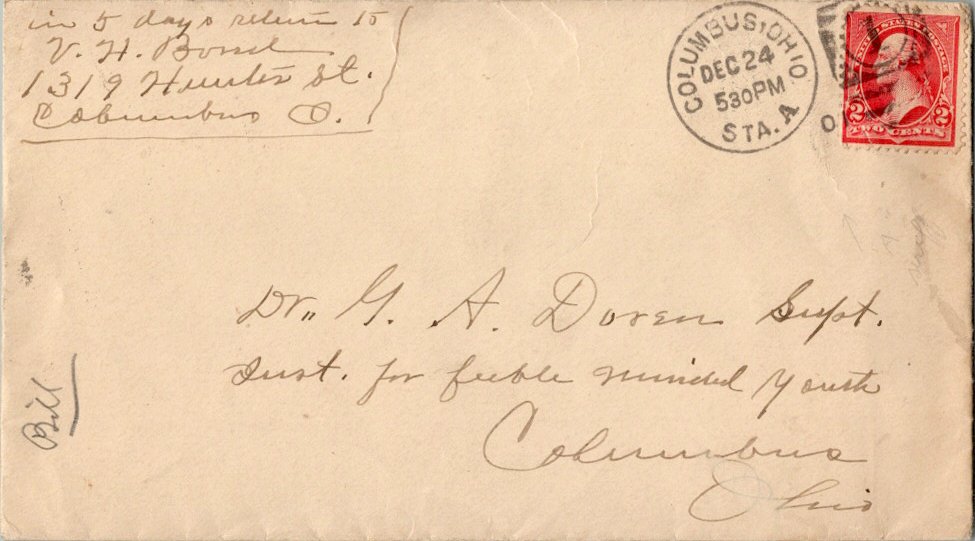 in 5 days return to
V. H.
1319 Hunter St.
Columbus O.
COLUMBUS, OHIO
DEC 24
530PM
STA. A
UNITED STATES POSTAGE
2 2
TWO CENTS
Dr. G. A. Doren Supt.
Inst. for feeble minded Youth
Columbus
Ohio
Bill